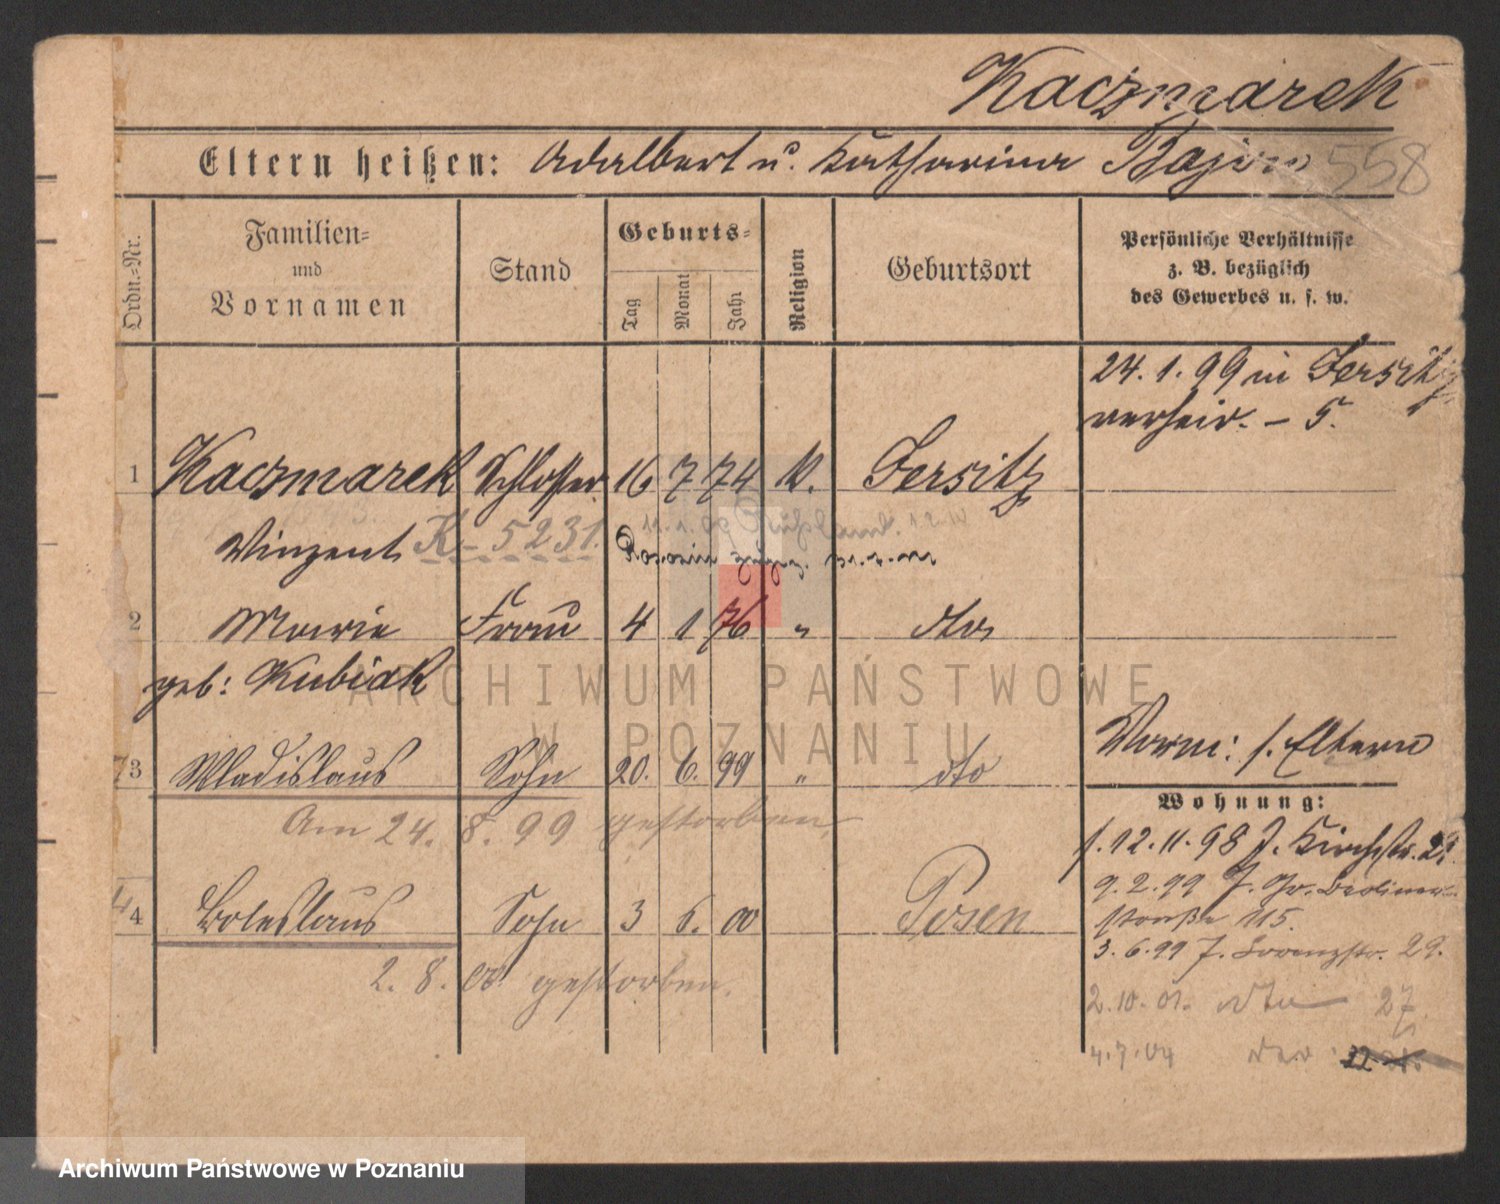 Kaczmarek
Eltern heißen: Adalbert u. Katharina
558
Ordn.-Nr.
Familien-
und
Vornamen
Stand
Geburts-
Tag
Monat
Jahr
Religion
Geburtsort
Persönliche Verhältnisse
z. B. bezüglich
des Gewerbes u. s. w.
24. 1. 99 in Jersitz
verheir. – 5.
1 Kaczmarek Schlosser 16 7 74 k. Jersitz
Vinzent K - 5231.
2 Marie Frau 4 1 76 " dto
geb: Kubiak
3 Wladislaus Sohn 20. 6. 99 " dto
Vorm: s. Eltern
Wohnung:
Am 24. 8. 99 gestorben
12. 11. 98 J. Kirchstr.
9. 2. 99 J. Gr. Berliner-
straße 115.
4 Boleslaus Sohn 3 6. 00 Posen
3. 6. 99 J. Lorenzstr. 29.
2. 8. 00 gestorben.
2. 10. 01. dto 27
4. 7. 04
ARCHIWUM PAŃSTWOWE
W POZNANIU
Archiwum Państwowe w Poznaniu